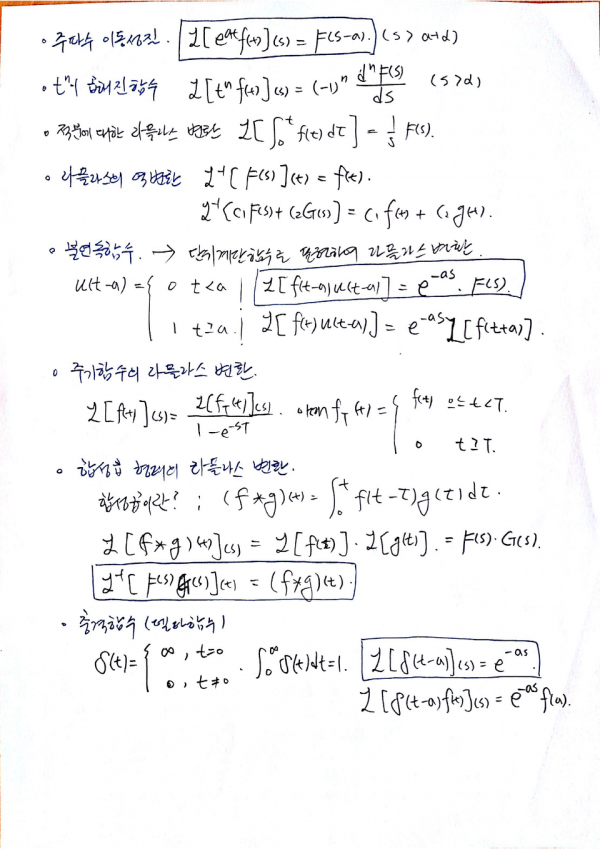 • 주파수 이동성질. ℒ[e^{at}f(t)](s) = F(s-a). (s > a+α)
• t^n이 곱해진함수 ℒ[t^n f(t)](s) = (-1)^n d^n F(s)/ds (s>α)
• 적분에 대한 라플라스 변환 ℒ[∫_0^t f(t)dτ] = 1/s F(s).
• 라플라스의 역변환 ℒ^{-1}[F(s)](t) = f(t).
ℒ^{-1}[C₁F(s)+C₂G(s)] = C₁f(t) + C₂g(t).
• 불연속함수. → 단위계단함수로 표현하여 라플라스변환.
u(t-a) = { 0 t<a | ℒ[f(t-a)u(t-a)] = e^{-as}. F(s).
1 t≥a. | ℒ[f(t)u(t-a)] = e^{-as}ℒ[f(t+a)].
• 주기함수의 라플라스 변환.
ℒ[f(t)](s) = ℒ[f_T(t)](s) / 1-e^{-sT}. 이때 f_T(t) = { f(t) 0≤t<T.
0 t≥T.
• 합성곱 형태의 라플라스 변환.
합성곱이란? ; (f*g)(t) = ∫_0^t f(t-τ)g(τ)dτ.
ℒ[(f*g)(t)](s) = ℒ[f(t)]·ℒ[g(t)]. = F(s)·G(s).
ℒ^{-1}[F(s)G(s)](t) = (f*g)(t).
• 충격함수 (델타함수)
δ(t) = { ∞, t=0 . ∫_0^∞ δ(t)dt=1. ℒ[δ(t-a)](s) = e^{-as}.
0, t≠0 ℒ[δ(t-a)f(t)](s) = e^{-as}f(a).